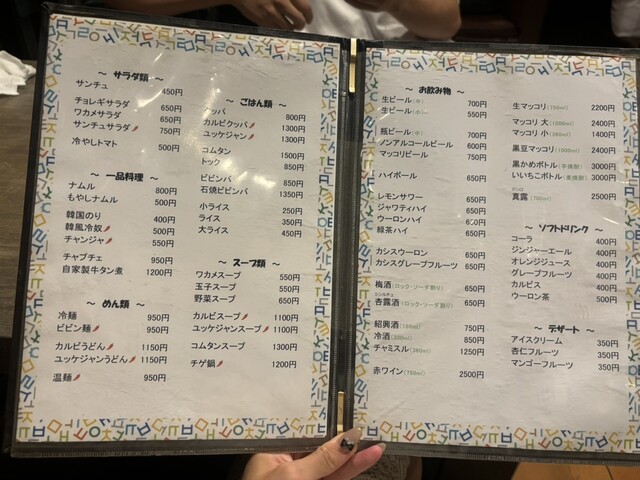 ～ サラダ類 ～
サンチュ 450円
チョレギサラダ 650円
ワカメサラダ 650円
サンチュサラダ 750円
冷やしトマト 500円
～ 一品料理 ～
ナムル 800円
もやしナムル 500円
韓国のり 400円
韓風冷奴 500円
チャンジャ 550円
チャプチェ 950円
自家製牛タン煮 1200円
～ めん類 ～
冷麺 950円
ビビン麺 950円
カルビうどん 1150円
ユッケジャンうどん 1150円
温麺 950円
～ ごはん類 ～
クッパ 800円
カルビクッパ 1300円
ユッケジャン 1300円
コムタン 1500円
トック 850円
ビビンバ 850円
石焼ビビンバ 1350円
小ライス 250円
ライス 350円
大ライス 450円
～ スープ類 ～
ワカメスープ 550円
玉子スープ 550円
野菜スープ 650円
カルビスープ 1100円
ユッケジャンスープ 1100円
コムタンスープ 1300円
チゲ鍋 1200円
～ お飲み物 ～
生ビール(中) 700円
生ビール(小) 550円
瓶ビール(中) 700円
ノンアルコールビール 600円
マッコリビール 750円
ハイボール 650円
レモンサワー 650円
ジャワティハイ 650円
ウーロンハイ 650円
緑茶ハイ 650円
カシスウーロン 650円
カシスグレープフルーツ 650円
梅酒(ロック・ソーダ割り) 650円
杏露酒(ロック・ソーダ割り) 650円
紹興酒 750円
冷酒 850円
チャミスル 1250円
赤ワイン(750ml) 2500円
生マッコリ(750ml) 2200円
マッコリ 大(1000ml) 2400円
マッコリ 小 1400円
黒豆マッコリ(1000ml) 2400円
黒かめボトル(芋焼酎) 3000円
いいちこボトル(麦焼酎) 3000円
真露(700ml) 2500円
～ ソフトドリンク ～
コーラ 400円
ジンジャーエール 400円
オレンジジュース 400円
グレープフルーツ 400円
カルピス 400円
ウーロン茶 500円
～ デザート ～
アイスクリーム 350円
杏仁フルーツ 350円
マンゴーフルーツ 350円